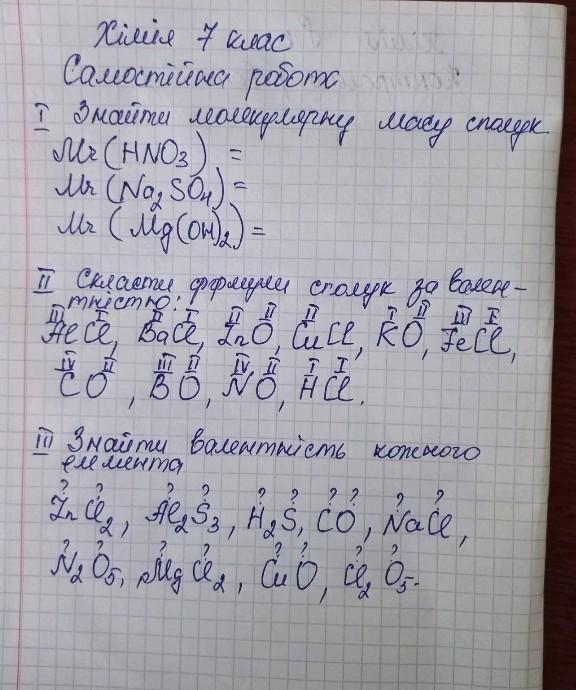 Хімія 7 клас
Самостійна робота
I Знайти молекулярну масу сполук
Mr(HNO3) =
Mr(Na2SO4) =
Mr(Mg(OH)2) =
II Скласти формули сполук за вален-
тністю:
III I II I II II II I II III I
AlCl, BaCl, ZnO, CuCl, KO, FeCl,
IV II III II IV II I I
CO, BO, NO, HCl.
III Знайти валентність кожного
елемента
? ? ? ? ? ? ? ? ? ?
ZnCl2, Al2S3, H2S, CO, NaCl,
? ? ? ? ? ? ? ?
N2O5, MgCl2, CuO, Cl2O5.